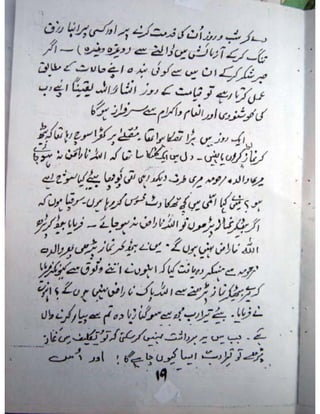 دے کر شب و روز اُن کی خدمت کرنے پر اور کسی پر اپنا رزق
تنگ کر کے آزمائش میں ڈالنے سے (وغیرہ وغیرہ) - اگر
صبر شکر کر کے ان میں سے کوئی بندہ اپنے حالات کے مطابق
عمل کرتا رہے تو قیامت کے روز انشاء اللہ یقیناً اپنے رب
کی خوشنودی اور انعام و اکرام سے سرفراز ہو گا
ایک روز میں بڑا تھکا ہوا تھا مصلّے پر کھڑا سوچ رہا تھا کہ بیٹھ
کر نماز پڑھوں یا نہیں - دل میں ایک کھٹکا سا تھا کہ اللہ ناراض نہ ہو جائے
میری والدہ مرحومہ میری طرف دیکھ رہی تھی پوچھا بیٹے کیا سوچ رہے
ہو؟ میں کہا امی میں کچھ تھکاوٹ محسوس کر رہا ہوں سوچتا ہوں کہ
اگر بیٹھ کر نماز پڑھوں تو اللہ ناراض نہ ہو جائے - فرمایا بیٹھ کر پڑھ
اللہ ناراض نہیں ہوں گے - میں نے بیٹھ کر نماز پڑھی پھر والدہ
مرحومہ سے دریافت کیا کہ انہوں نے اتنے وثوق سے کیونکر فرمایا
کہ بیٹھ کر نماز پڑھنے سے اللہ پاک ناراض نہیں ہوں گے؟
نے فرمایا - بیٹے تیرا رب مجھ سے سو گنا زیادہ تم سے پیار کرنے والا
ہے - جب میں یہ برداشت نہیں کر سکتی کہ تو تکلیف میں نماز
پڑھے تو تیرا رب ایسا کیوں چاہے گا! اور اُس
۱۹